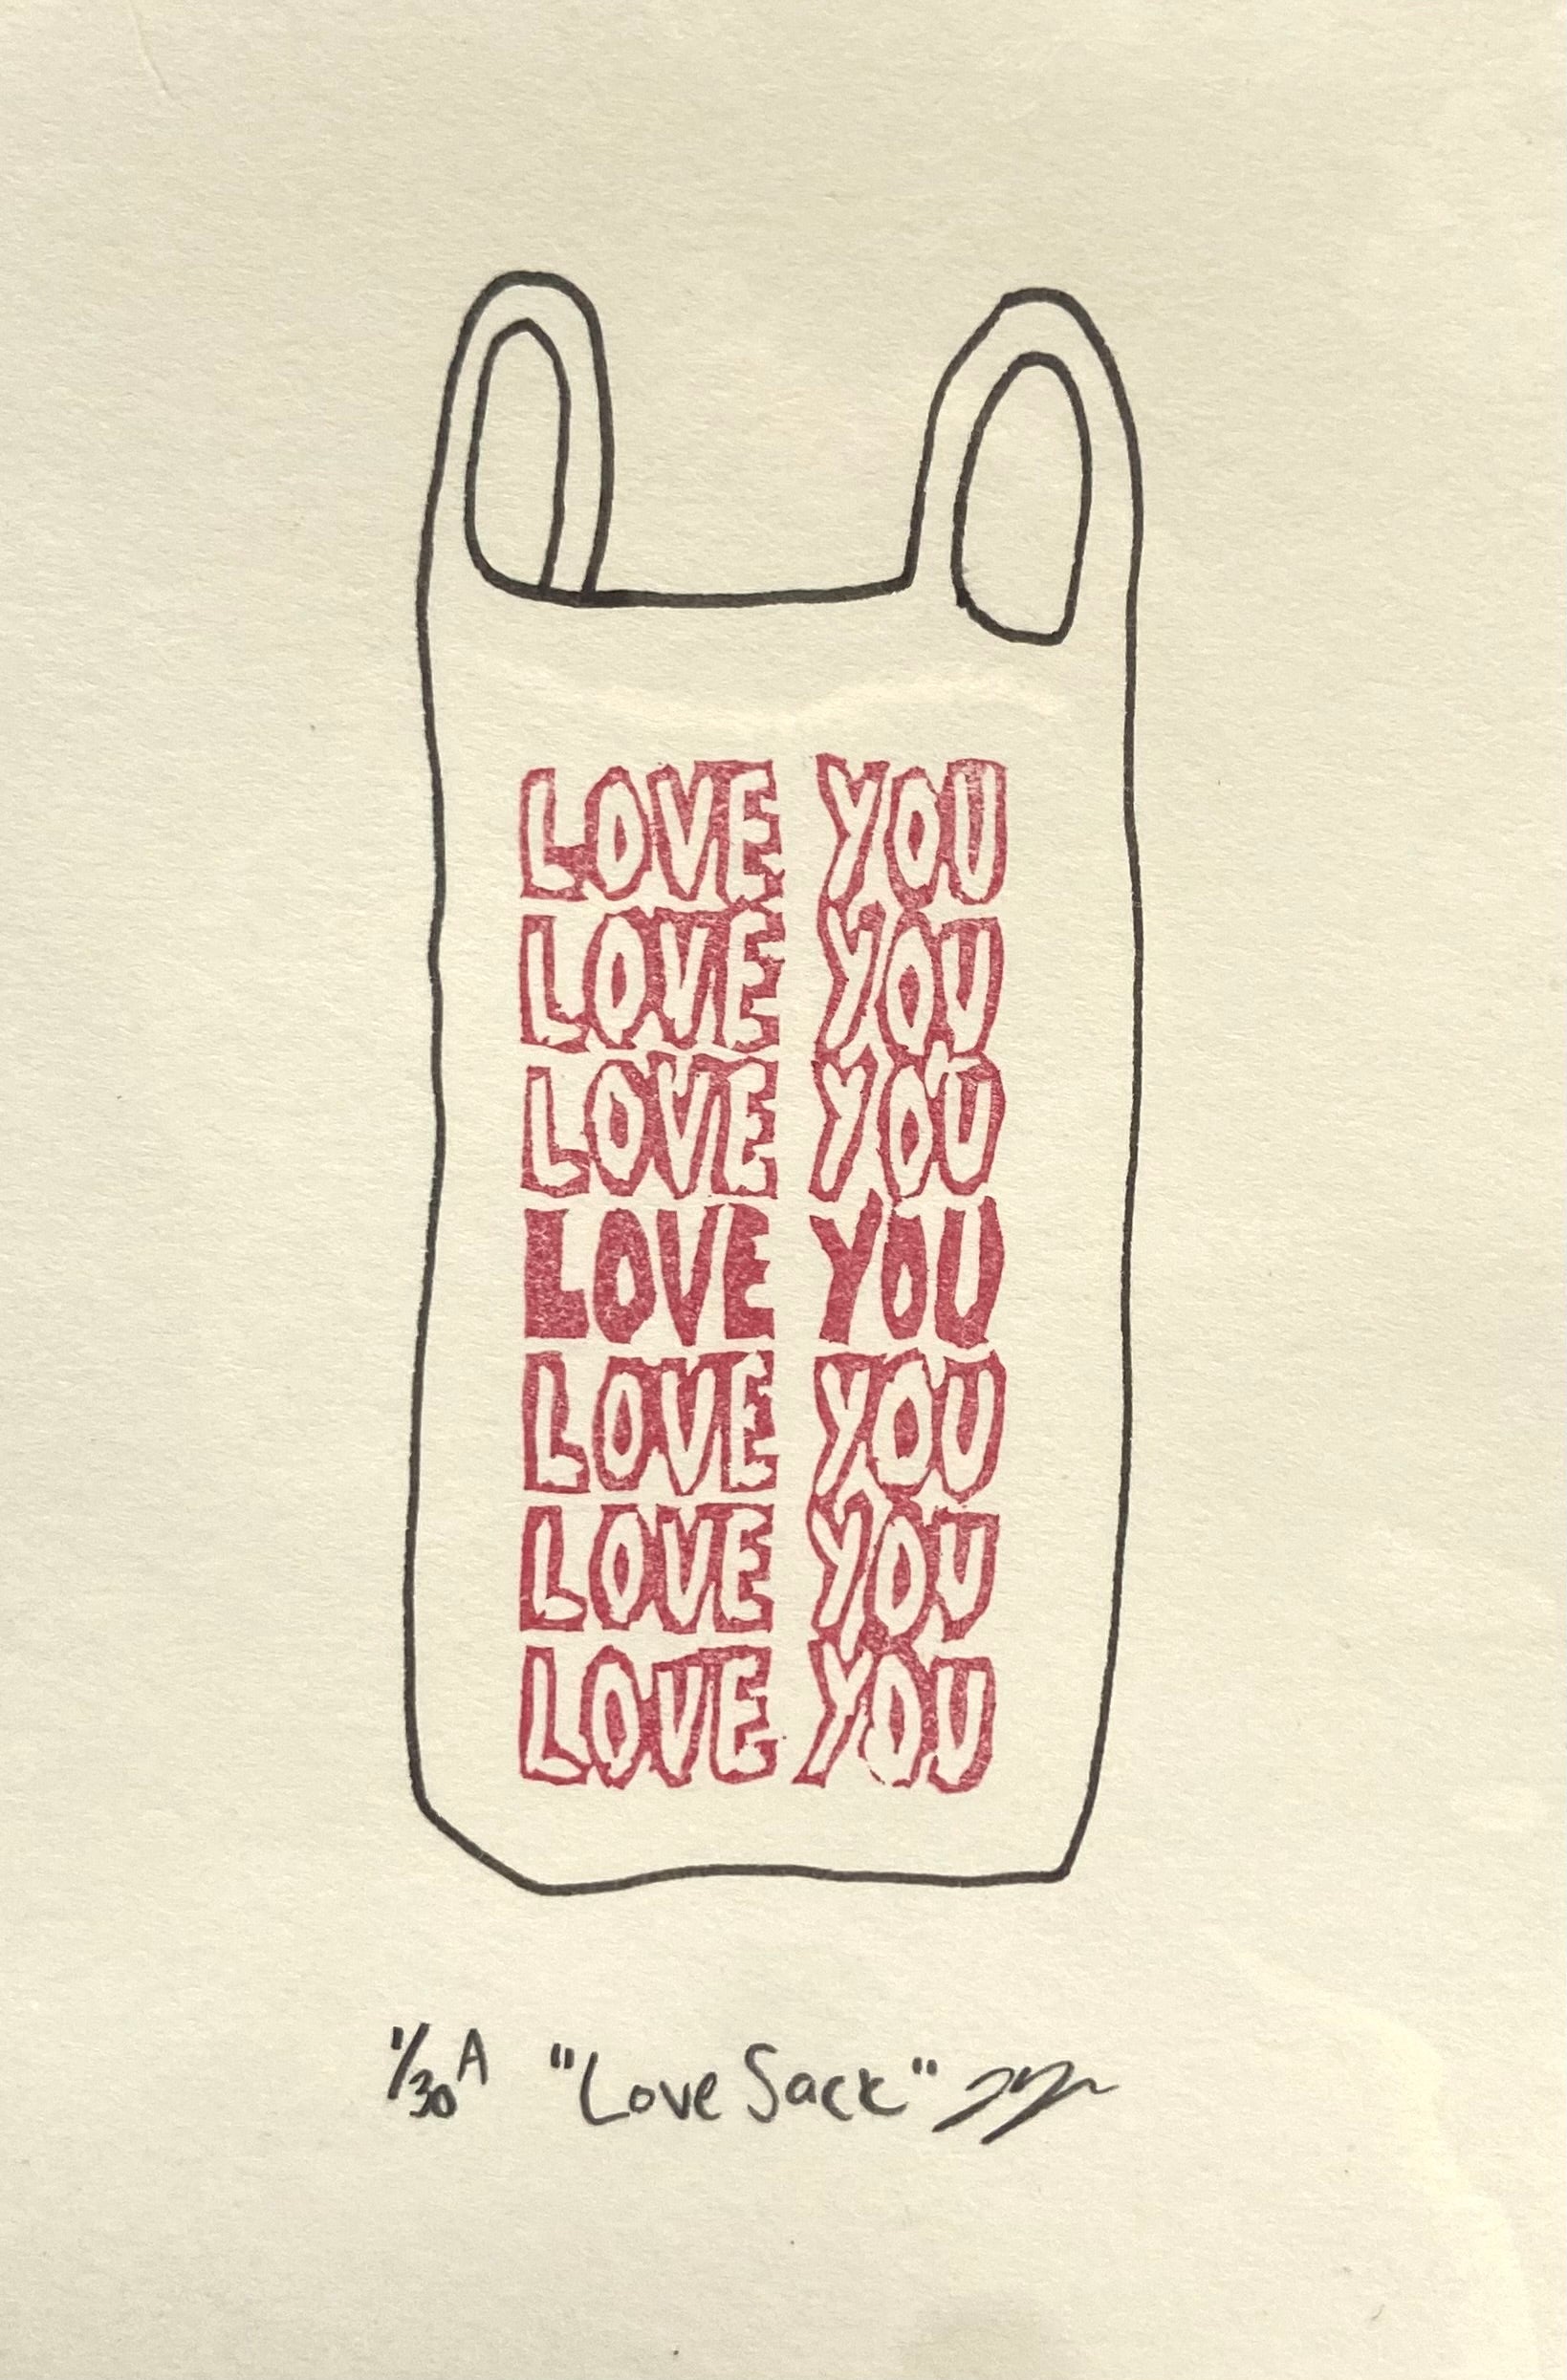 LOVE YOU
LOVE YOU
LOVE YOU
LOVE YOU
LOVE YOU
LOVE YOU
LOVE YOU
1/30 A "Love Sack"